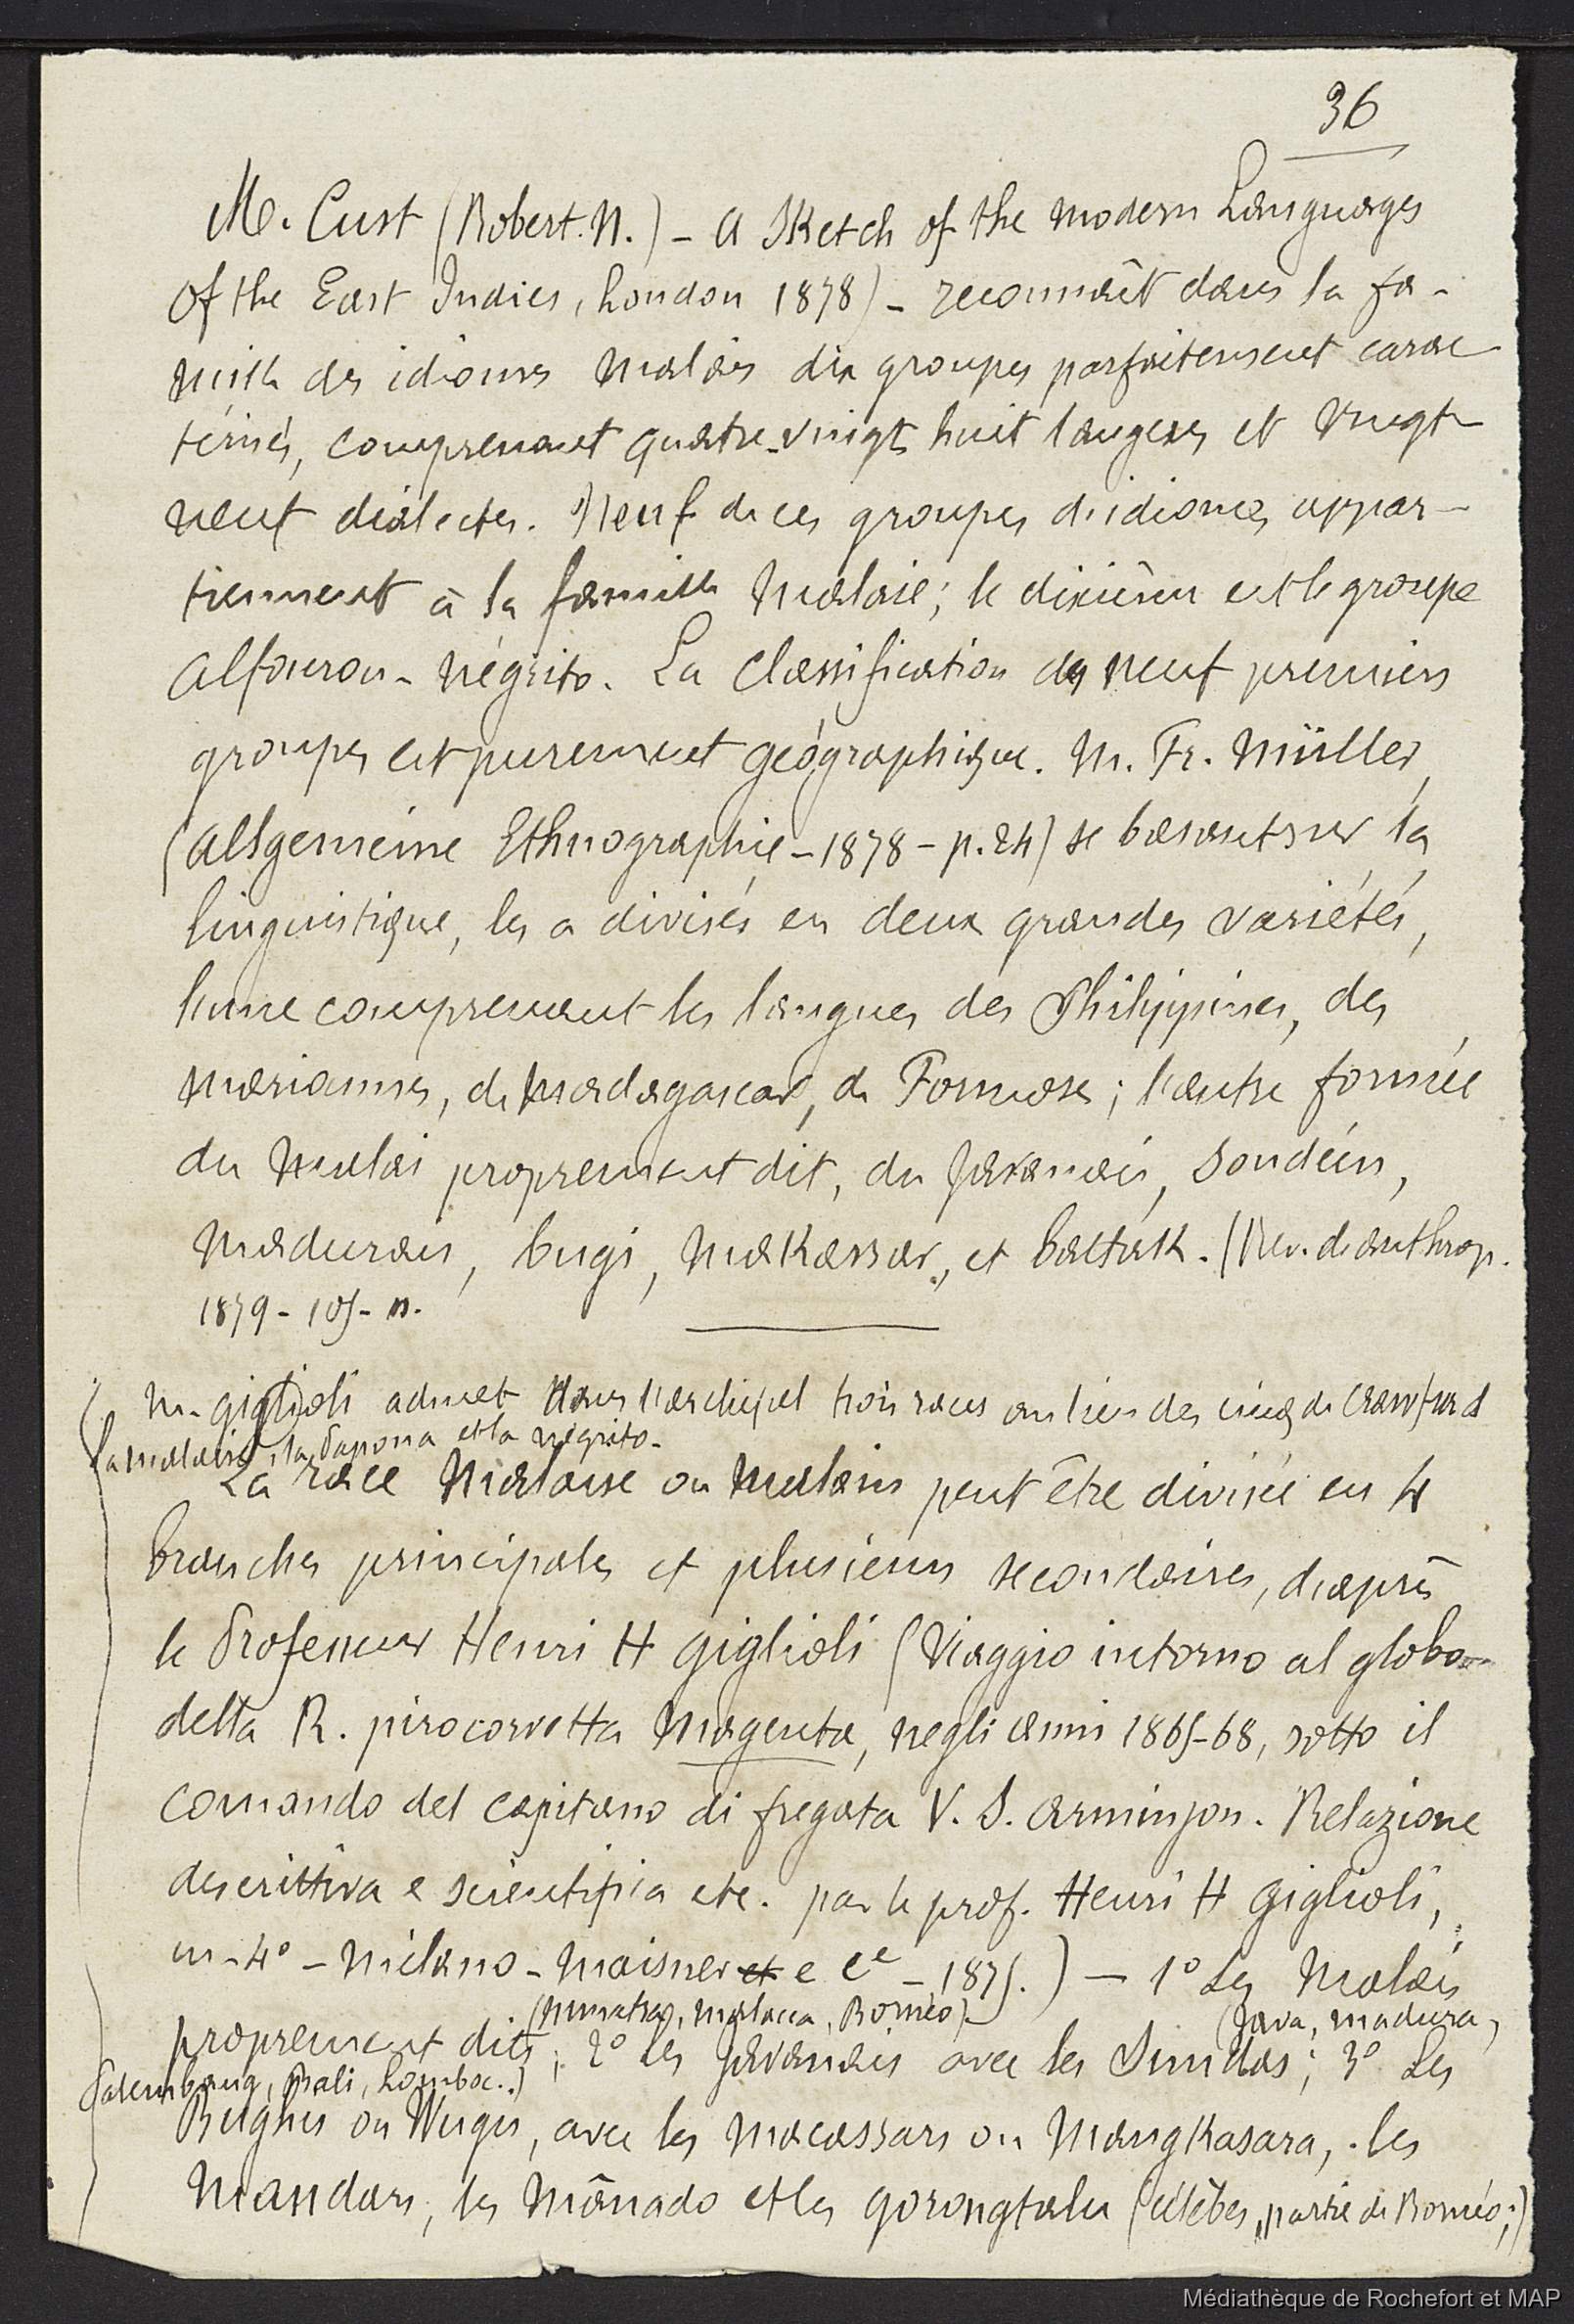 36
M. Cust (Robert. N.) - A Sketch of the modern Languages
of the East Indies, London 1878) - reconnaît dans la fa-
mille des idiomes Malais dix groupes parfaitement carac
térisés, comprenant quatre-vingt huit langues et vingt-
neuf dialectes. Neuf de ces groupes d'idiomes appar-
tiennent à la famille Malaise; le dixième est le groupe
Alfourou-négrito. La classification des neuf premiers
groupes est purement géographique. M. Fr. Müller,
(Allgemeine Ethnographie - 1878 - p. 24) se basant sur la
linguistique, les a divisés en deux grandes variétés,
l'une comprenant les langues des Philippines, des
Mariannes, de Madagascar, de Formose; l'autre formée
du Malai proprement dit, du Javanais, Soudéen,
Madurais, bugi, Makassar, et battak. (Rev. d'anthrop.
1879 - 105 - n.
M. Giglioli admet dans l'archipel trois races au lieu des cinq de Crawfurd
la malaise, la Papoua et la négrito-
La race Malaise ou Malais peut être divisée en 4
branches principales et plusieurs secondaires, d'après
le Professeur Henri H Giglioli (Viaggio intorno al globo
della R. pirocorvetta Magenta, negli anni 1865-68, sotto il
comando del capitano di fregata V. S. Arminjon. Relazione
descrittiva e scientifica etc. par le prof. Henri H Giglioli,
in-4° - Milano - Maisner et e Ce - 1875.) - 1° Les Malais
(Sumatra, Malacca, Bornéo) (Java, Madura,
proprement dits; 2° Les Javanais avec les Sundas; 3° Les
Palembang, Bali, Lomboc..)
Bughis ou Wugis, avec les Macassars ou Mangkasara, les
Mandars, les Mânado et les Gorongtalu (Célèbes, partie de Bornéo;)
Médiathèque de Rochefort et MAP